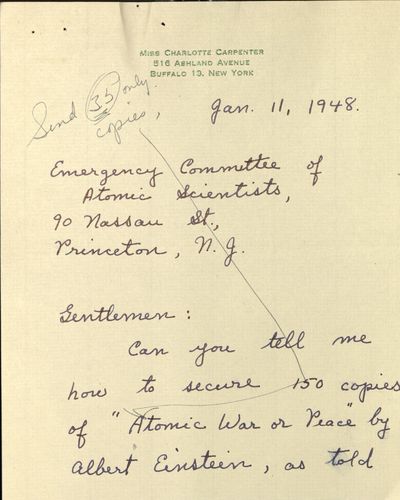 Miss Charlotte Carpenter
516 Ashland Avenue
Buffalo 13, New York
Send 35 only.
copies,
Jan. 11, 1948.
Emergency Committee of
Atomic Scientists,
90 Nassau St.,
Princeton, N.J.
Gentlemen:
Can you tell me
how to secure 150 copies
of "Atomic War or Peace" by
Albert Einstein, as told